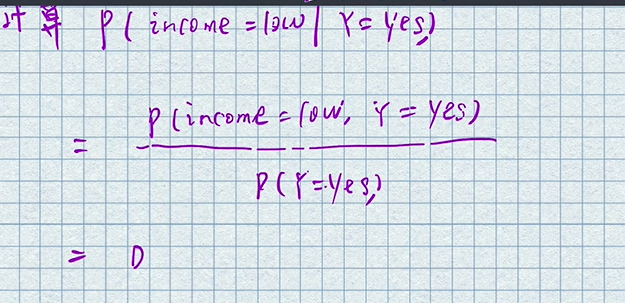 计算 P( income = low | Y = Yes)
= P(income = low, Y = Yes)
P(Y = Yes)
= 0